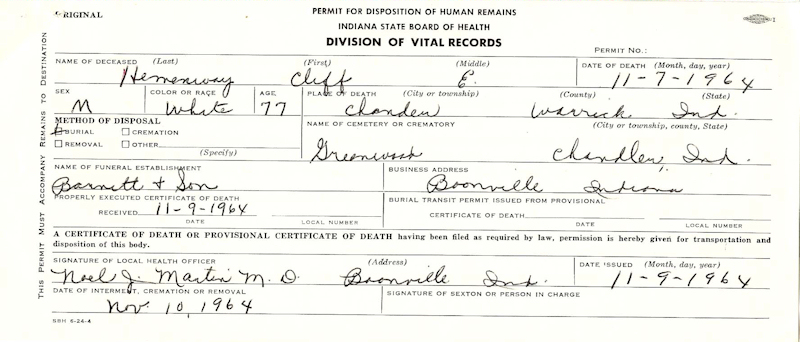 ORIGINAL
PERMIT FOR DISPOSITION OF HUMAN REMAINS
INDIANA STATE BOARD OF HEALTH
DIVISION OF VITAL RECORDS
PERMIT NO.:
THIS PERMIT MUST ACCOMPANY REMAINS TO DESTINATION
NAME OF DECEASED (Last) (First) (Middle) DATE OF DEATH (Month, day, year)
Hemenway Cliff E. 11-7-1964
SEX COLOR OR RACE AGE PLACE OF DEATH (City or township) (County) (State)
M White 77 Chandler Warrick Ind.
METHOD OF DISPOSAL NAME OF CEMETERY OR CREMATORY (City or township, county, State)
BURIAL CREMATION
REMOVAL OTHER
(Specify)
Greenwood Chandler, Ind.
NAME OF FUNERAL ESTABLISHMENT BUSINESS ADDRESS
Barnett & Son Boonville Indiana
PROPERLY EXECUTED CERTIFICATE OF DEATH BURIAL TRANSIT PERMIT ISSUED FROM PROVISIONAL
RECEIVED 11-9-1964 CERTIFICATE OF DEATH
DATE LOCAL NUMBER DATE LOCAL NUMBER
A CERTIFICATE OF DEATH OR PROVISIONAL CERTIFICATE OF DEATH having been filed as required by law, permission is hereby given for transportation and
disposition of this body.
SIGNATURE OF LOCAL HEALTH OFFICER (Address) DATE ISSUED (Month, day, year)
Noel J. Martin M.D. Boonville Ind. 11-9-1964
DATE OF INTERMENT, CREMATION OR REMOVAL SIGNATURE OF SEXTON OR PERSON IN CHARGE
Nov. 10, 1964
SBH 6-24-4